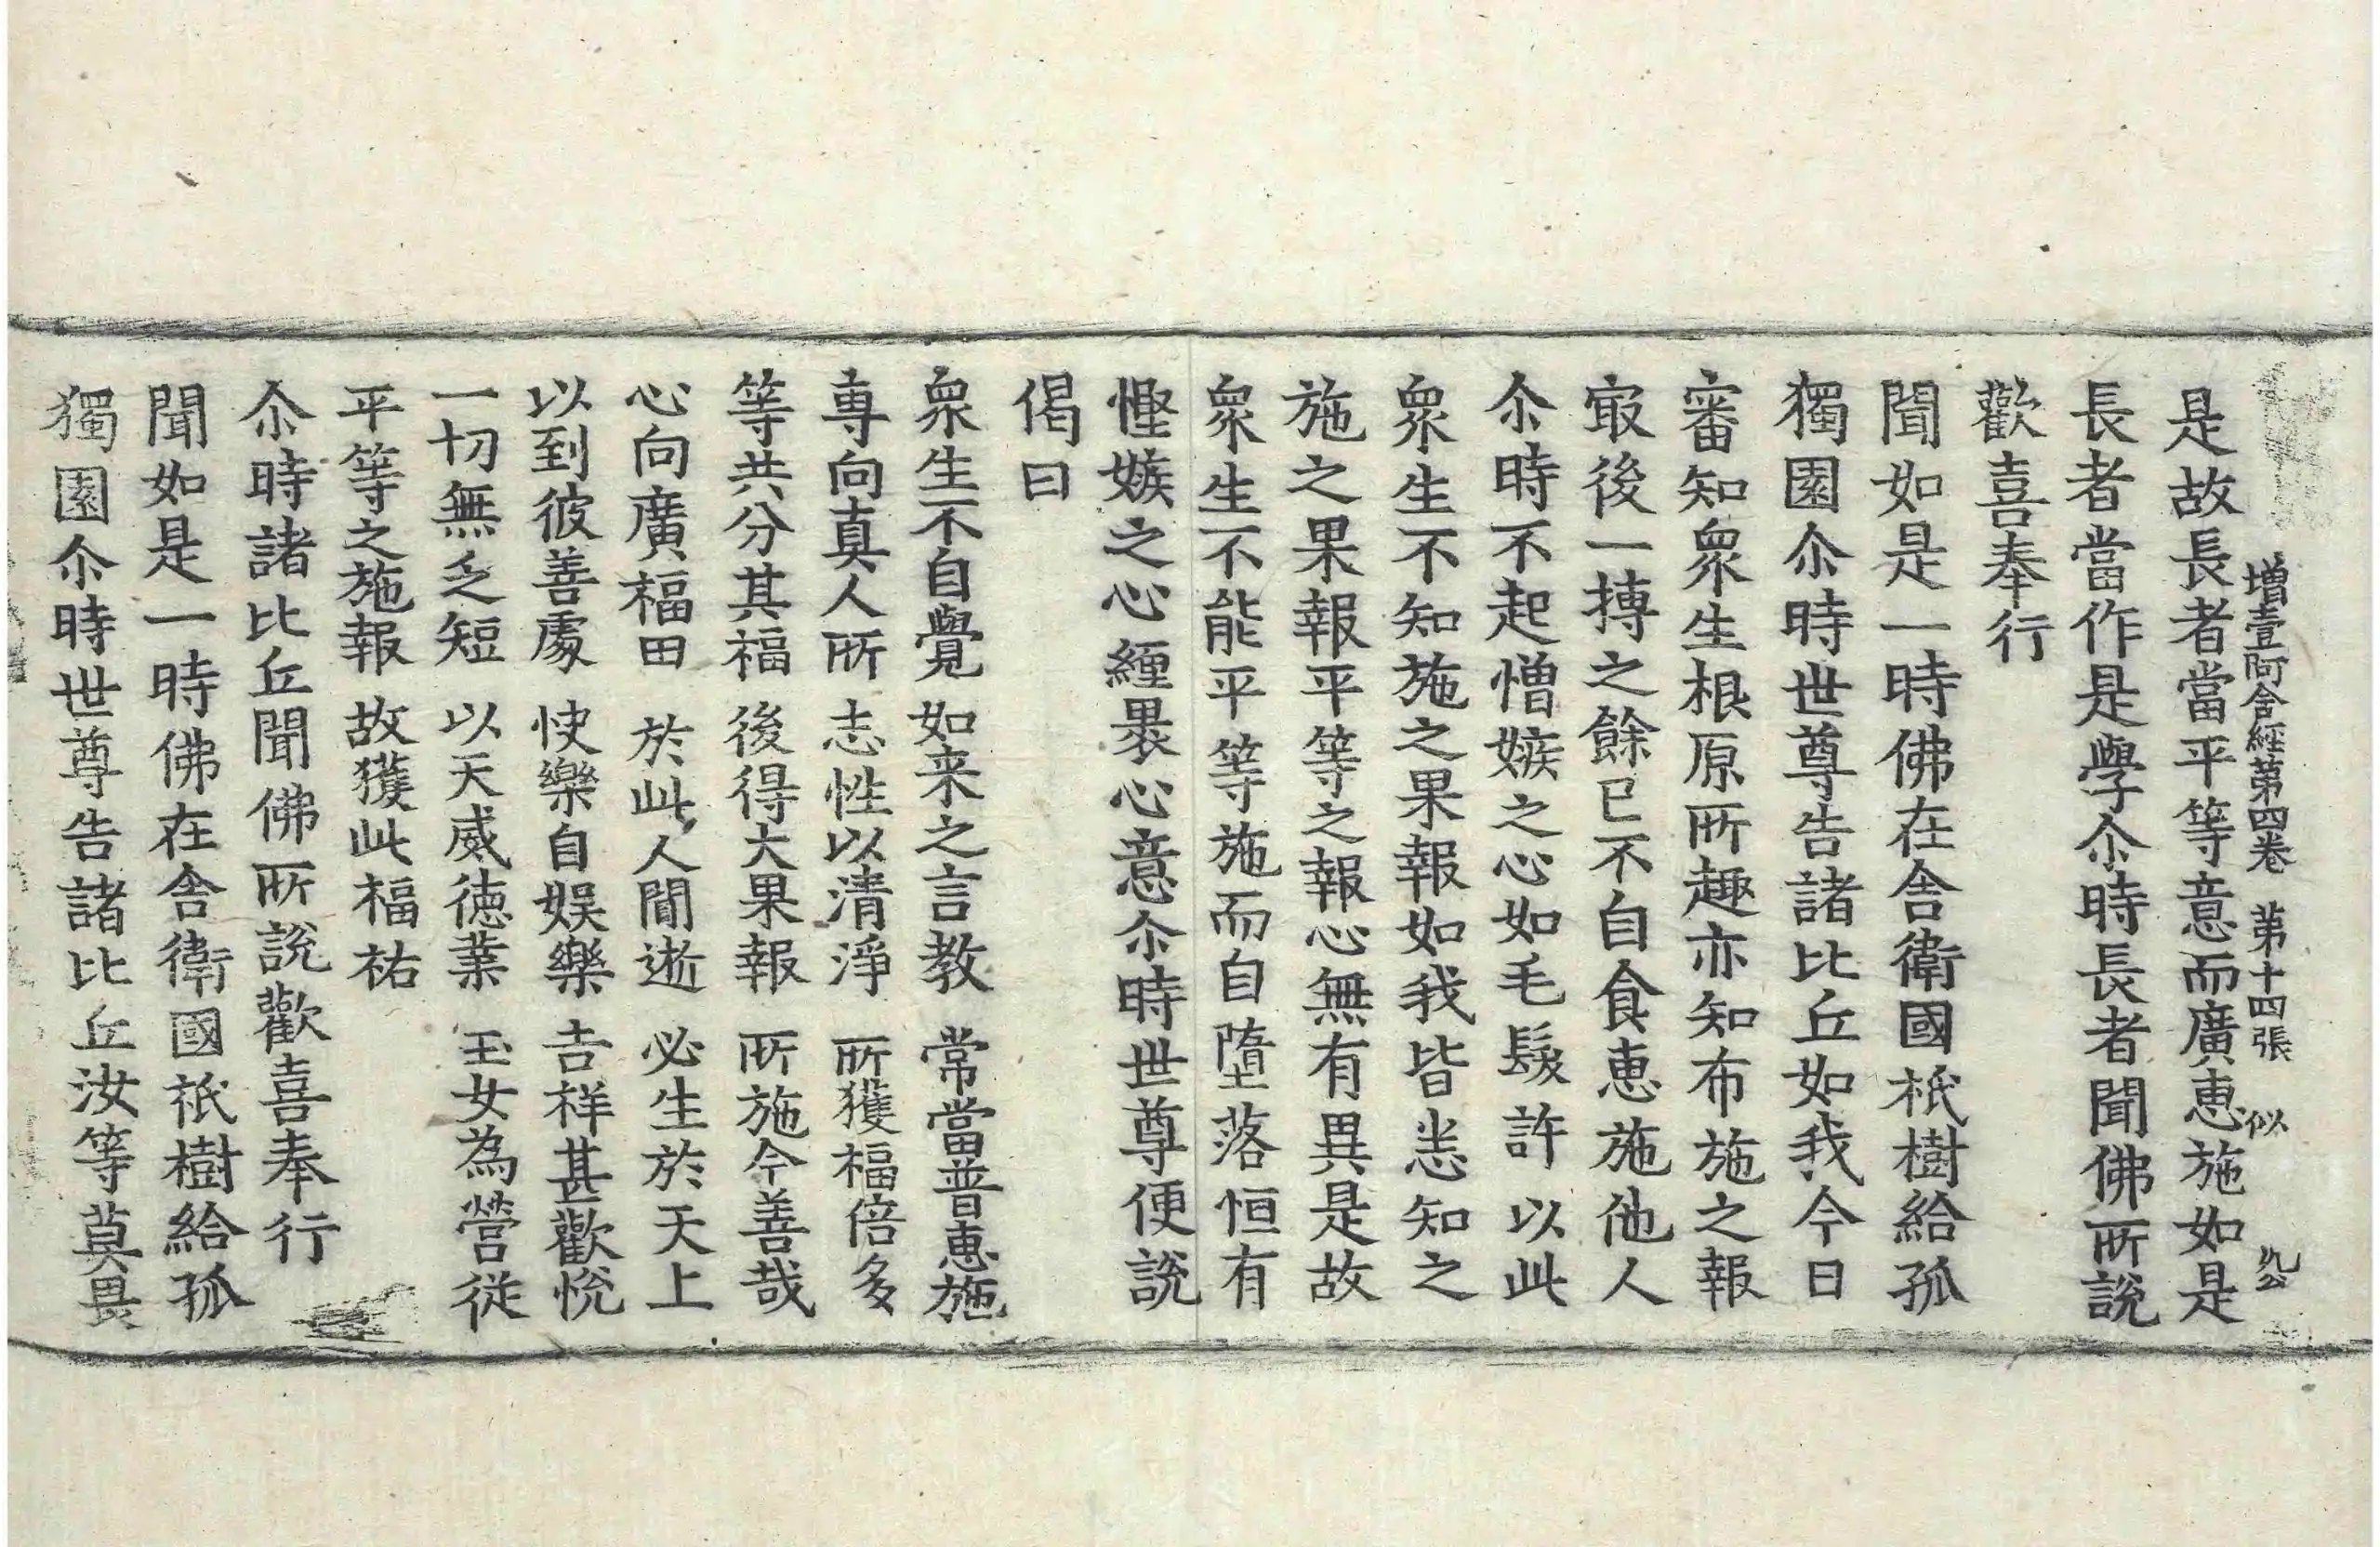 增壹阿含經第四卷 第十四張 似
是故長者當平等意而廣恵施如是
長者當作是學尒時長者聞佛所說
歡喜奉行
聞如是一時佛在舍衛國祇樹給孤
獨園尒時世尊告諸比丘如我今日
審知衆生根原所趣亦知布施之報
㝡後一摶之餘已不自食恵施他人
尒時不起憎嫉之心如毛髮許以此
衆生不知施之果報如我皆悉知之
施之果報平等之報心無有異是故
衆生不能平等施而自墮落恒有
慳嫉之心纏褁心意尒時世尊便說
偈曰
衆生不自覺 如来之言教 常當普恵施
專向真人所 志性以清淨 所獲福倍多
等共分其福 後得大果報 所施今善哉
心向廣福田 於此人閒逝 必生於天上
以到彼善處 快樂自娱樂 吉祥甚歡悅
一切無乏短 以天威徳業 玉女為營従
平等之施報 故獲此福祐
尒時諸比丘聞佛所說歡喜奉行
聞如是一時佛在舍衛國祇樹給孤
獨園尒時世尊告諸比丘汝等莫畏